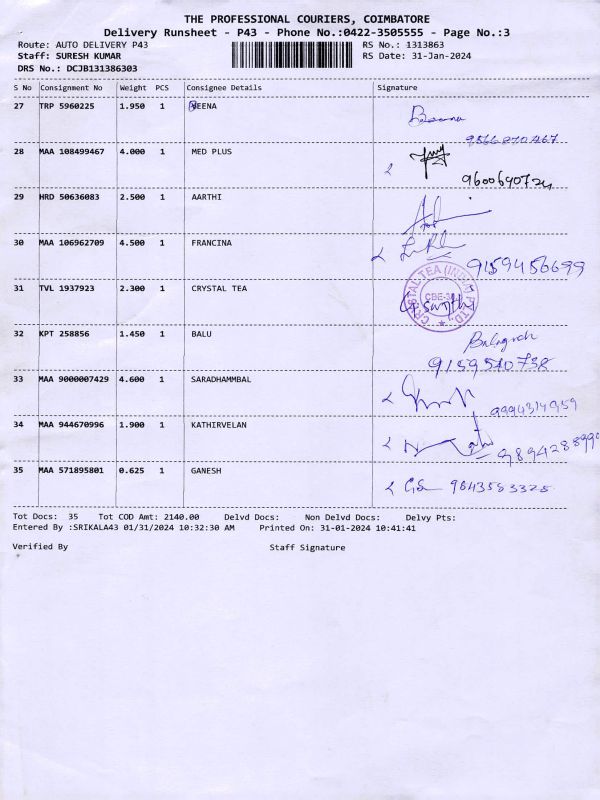 THE PROFESSIONAL COURIERS, COIMBATORE
Delivery Runsheet - P43 - Phone No.:0422-3505555 - Page No.:3
Route: AUTO DELIVERY P43 RS No.: 1313863
Staff: SURESH KUMAR RS Date: 31-Jan-2024
DRS No.: DCJB131386303
S No Consignment No Weight PCS Consignee Details Signature
27 TRP 5960225 1.950 1 VEENA
9566870467
28 MAA 108499467 4.000 1 MED PLUS
9600640724
29 HRD 50636083 2.500 1 AARTHI
30 MAA 106962709 4.500 1 FRANCINA
9159456699
31 TVL 1937923 2.300 1 CRYSTAL TEA
CRYSTAL TEA (INDIA) P LTD
32 KPT 258856 1.450 1 BALU
9159510738
33 MAA 9000007429 4.600 1 SARADHAMMBAL
9994314959
34 MAA 944670996 1.900 1 KATHIRVELAN
35 MAA 571895801 0.625 1 GANESH
9843553328
Tot Docs: 35 Tot COD Amt: 2140.00 Delvd Docs: Non Delvd Docs: Delvy Pts:
Entered By :SRIKALA43 01/31/2024 10:32:30 AM Printed On: 31-01-2024 10:41:41
Verified By Staff Signature